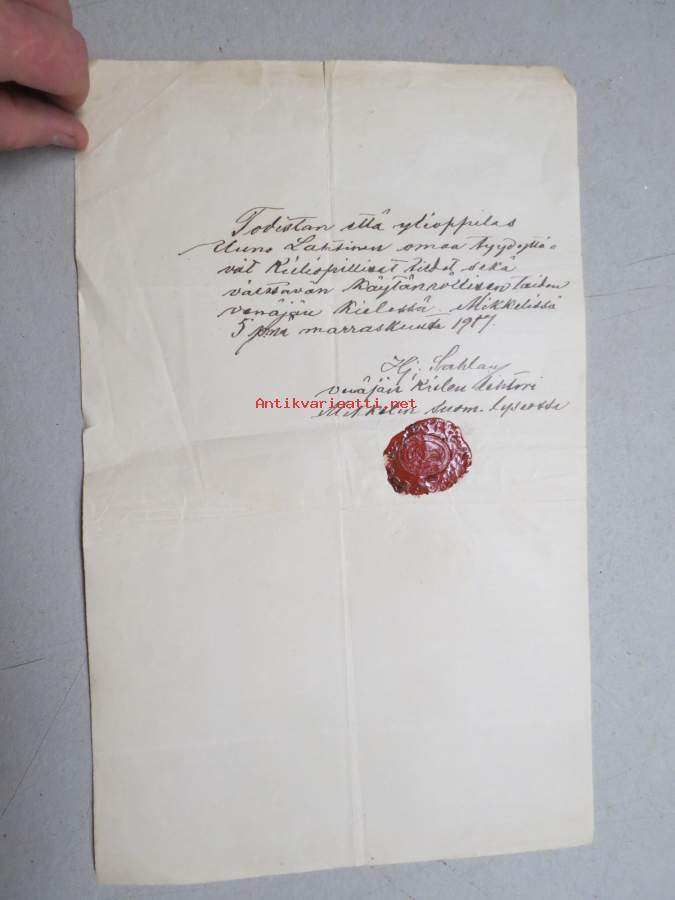 Todistan että ylioppilas
Uuno Lahtinen omaa tyydyttä-
vät kieliopilliset tiedot sekä
välttävän käytännöllisen taidon
venäjän kielessä. Mikkelissä
5 p:nä marraskuuta 1917.
Hj.
venäjän kielen lehtori
Antikvariaatti.net
Mikkelin Suom. lyseossa